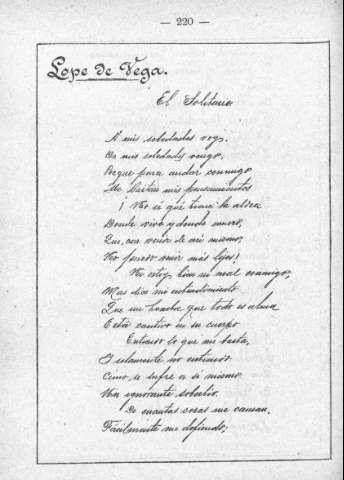 — 220 —
Lope de Vega.
El Solitario
A mis soledades voy,
De mis soledades vengo,
Porque para andar conmigo
Me bastan mis pensamientos
¡ No sé qué tiene la aldea
Donde vivo y donde muero,
Que con venir de mí mismo,
No puedo venir más lejos!
No estoy bien ni mal conmigo,
Mas dice mi entendimiento
Que un hombre que todo es alma
Está cautivo en su cuerpo
Entiendo lo que me basta,
Y solamente no entiendo
Cómo se sufre a sí mismo
Un ignorante soberbio.
De cuantas cosas me cansan,
Fácilmente me defiendo;